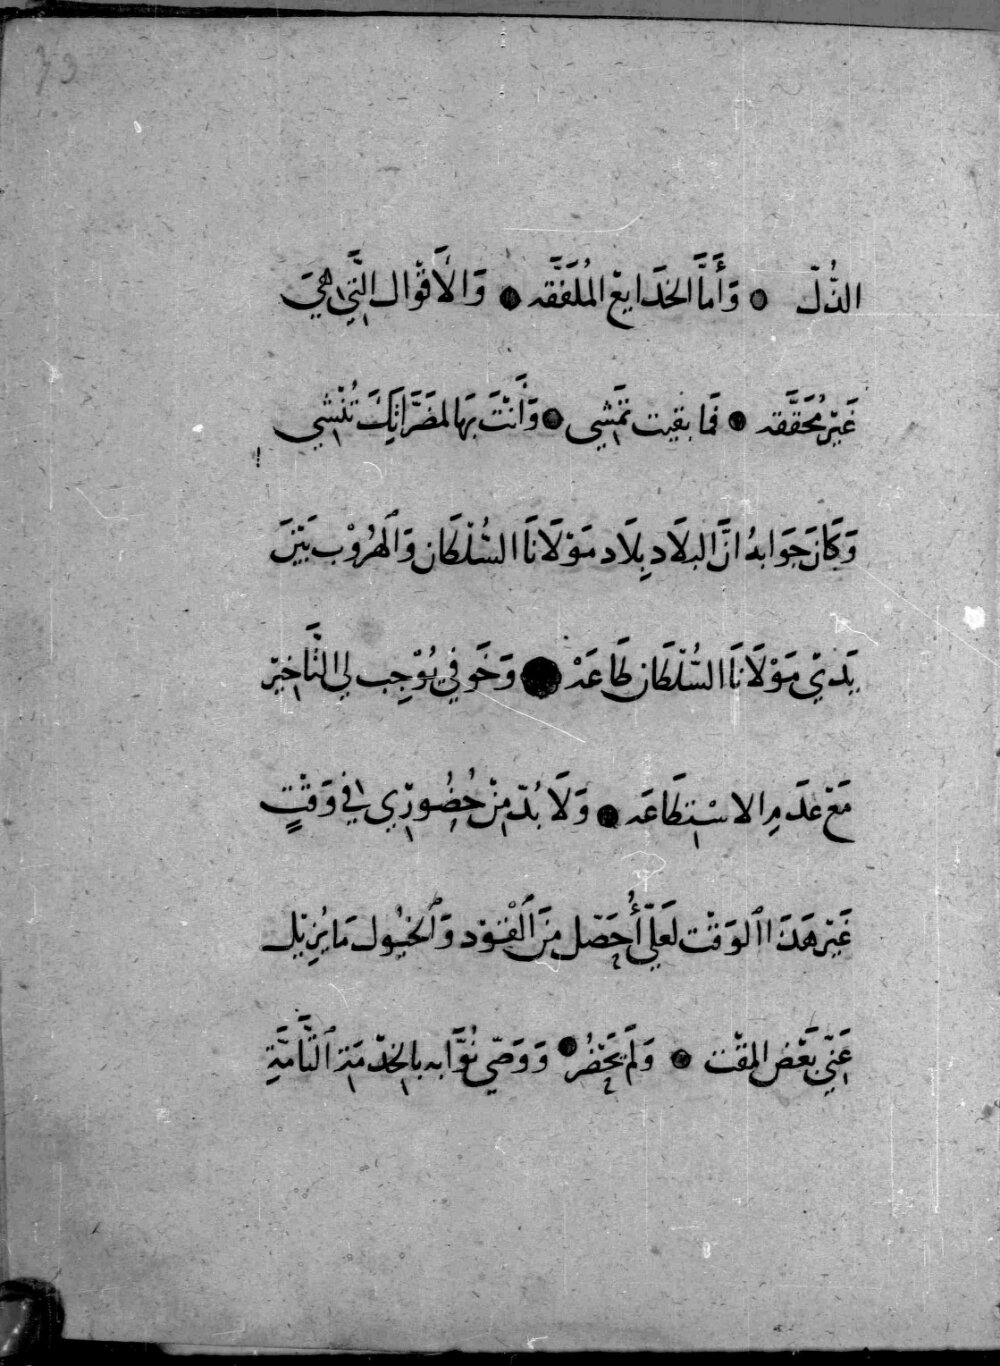 الذُّلّ ۞ وَأَمَّا الخَدَايِعْ المُلَفَّقَه ۞ وَالاَقْوَال الَّتِي هِيَ
غَيْر مُحَقَّقَه ۞ فَمَا بقيت تَمْشِي ۞ وَأَنْتَ بِهَا لمضَرَّاتِكَ تُنْشِي
وَكَانَ جَوَابهُ انَّ البلَاد بِلَاد مَوْلَانَا السُّلْطَان وَالهُرُوْب بَيْنَ
يَدَيْ مَوْلَانَا السُّلْطَان طَاعَهْ ۞ وَخَوفِي يُوْجِب لِي التَّاخِيْر
مَعْ عَدَمِ الاسْتِطَاعَه ۞ وَلَا بُدّ مِنْ حُضُوْرِي فِي وَقْتٍ
غَيْر هَذَا الوَقْت لَعَلِّي أُحَصّل مِنَ الْقَوْد وَالخيُول مَا يُزِيْل
عَنِّي بَعْض المقْت ۞ وَلَمْ يَحْضُر ۞ وَوَصّي نُوَّابه بِالخِدْمَةِ التَّامَّةِ